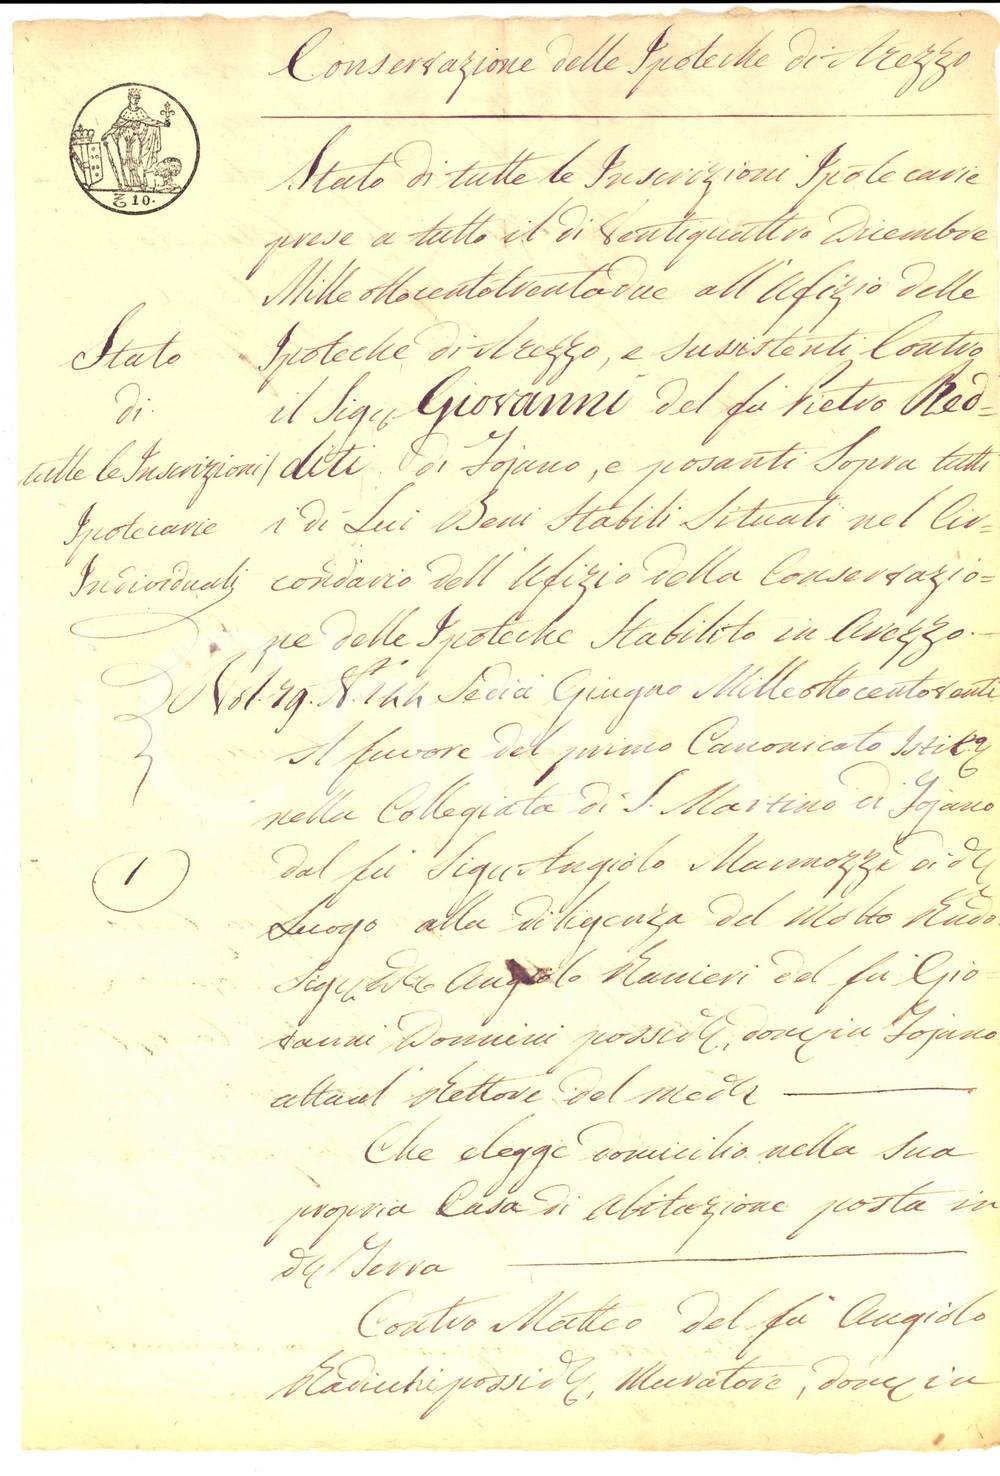 Conservazione delle Ipoteche di Arezzo
Stato di tutte le Inscrizioni Ipotecarie
prese a tutto il dì Ventiquattro Dicembre
Milleottocentotrentadue all'Ufizio delle
Ipoteche di Arezzo, e sussistenti Contro
il Sigr Giovanni del fù Pietro Red=
diti di Fojano, e posanti Sopra tutti
i di Lui Beni Stabili Situati nel Cir=
condario dell'Ufizio della Conservazio=
ne delle Ipoteche Stabilito in Arezzo.—
Stato
di
tutte le Inscrizioni
Ipotecarie
Individuali
10.
Vol. 29. Sedici Giugno Milleottocentoventi
A favore del primo Canonicato
nella Collegiata di S. Martino di Fojano
1
dal fù Sigr Angiolo di
Luogo alla diligenza del Molto Revdo
Sigr Angiolo Ranieri del fù Gio=
vanni Donnini possid, dom in Fojano
attual Rettore del med
Che elegge domicilio nella Sua
propria Casa di Abitazione posta in
Terra
Contro Matteo del fù Angiolo
possid, Muratore, dom in